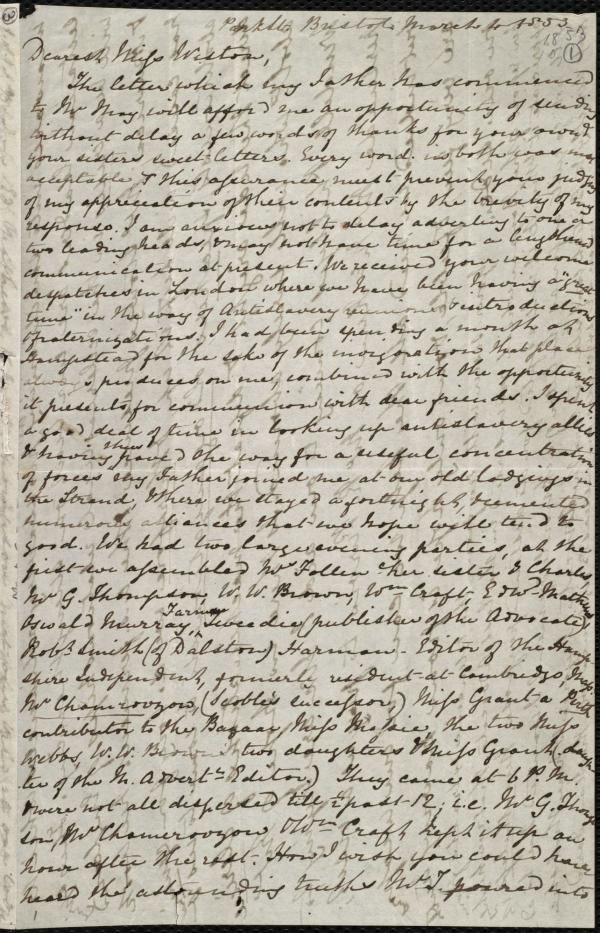 Park St. Bristol. March 4 1853
1853
1
Dearest Miss Weston,
The letter which my Father has commenced
to Mr May will afford me an opportunity of sending
without delay a few words of thanks for your own &
your sisters sweet letters. Every word in both was most
acceptable & this assurance must prevent your judging
of my appreciation of their contents by the brevity of my
response. I am anxious not to delay adverting to one or
two leading heads, & may not have time for a lengthened
communication at present. We received your welcome
despatches in London where we have been having a "great
time" in the way of Antislavery reunions & introductions
& fraternizations. I had been spending a month at
Hampstead for the sake of the invigoration that place
always produces on me, combined with the opportunity
it presents for communion with dear friends. I spent
a good deal of time in looking up antislavery allies
& having thus paved the way for a useful concentration
of forces my Father joined me, at our old lodgings in
the Strand, where we stayed a fortnight, & cemented
numerous alliances that we hope will tend to
good. We had two large evening parties, at the
first we assembled Mrs Follen & her sister & Charles,
Mr G. Thompson, W. W. Brown, Wm Craft, Edwd Mathews,
Oswald Murray, Farmer, Tweedie (publisher of the Advocate)
Robt Smith (of Dalston) Harman - Editor of the Hamp-
shire Independent, formerly resident at Cambridge, Mass.
Mr Chamerovzow, (Scoble's successor,) Miss Grant a Perth
contributor to the Bazaar, Miss the two Miss
Webbs, W. W. Brown's two daughters & Miss Grant (daugh-
ter of the M. Advertr Editor.) They came at 6 P.M.
& were not all dispersed till ½ past 12; i.e. Mr G. Thomp-
son, Mr Chamerovzow & Wm Craft kept it up an
hour after the rest. How I wish you could have
heard the astounding truths Mr T. poured into